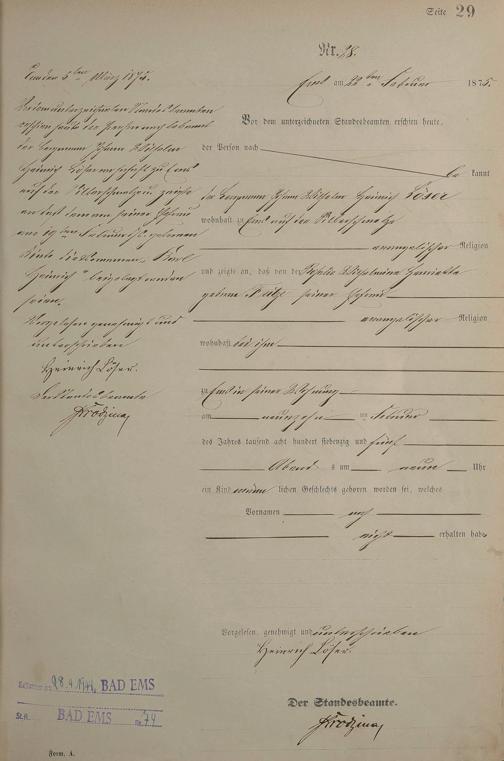 Seite 29
Nr. 28.
Ems am 22ten Februar 1875.
Vor dem unterzeichneten Standesbeamten erschien heute,
der Person nach
be kannt
der Bergmann Johann Wilhelm Heinrich Löser
wohnhaft zu Ems auf der Silberschmelze
evangelischer Religion
und zeigte an, daß von der Wilhelmine Henriette
geborne seiner Ehefrau
evangelischer Religion
wohnhaft bei ihm
zu Ems in seiner Wohnung
am neunzehn ten Februar
des Jahres tausend acht hundert siebenzig und fünf
Abend s um neun Uhr
ein Kind männ lichen Geschlechts geboren worden sei, welches
Vornamen noch
nicht erhalten habe
Vorgelesen, genehmigt und unterschrieben
Heinrich Löser.
Der Standesbeamte.
Ems den 5ten März 1875.
Vor dem unterzeichneten Standesbeamten
erschien heute der Person nach bekannt
der Bergmann Johann Wilhelm
Heinrich Löser wohnhaft zu Ems
auf der Silberschmelze und zeigte
an daß dem von seiner Ehefrau
am 19ten Februar geborenen
Kinde die Vornamen Karl
Heinrich beigelegt worden
seien.
Vorgelesen genehmigt und
unterschrieben
Heinrich Löser.
Der Standesbeamte
28.4.1944 BAD EMS
St.A. BAD EMS Nr. 74
Form. A.